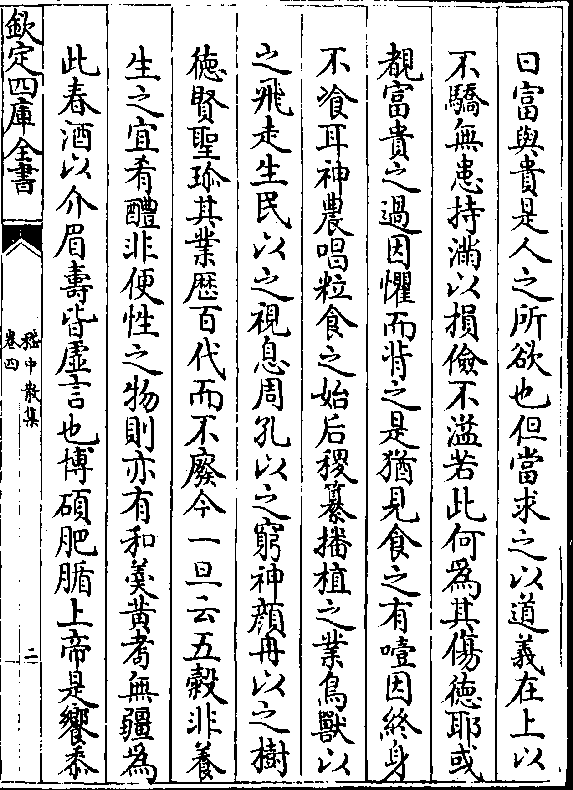 曰富與貴是人之所欲也但當求之以道義在上以
不驕無患持滿以損儉不溢若此何為其傷徳耶或
覩富貴之過因懼而背之是猶見食之有噎因終身
不飡耳神農唱粒食之始后稷纂播植之業鳥獸以
之飛走生民以之視息周孔以之窮神顔冉以之樹
徳賢聖珎其業歴百代而不廢今一旦云五穀非養
生之宜肴醴非便性之物則亦有和羮黄耈無疆為
此春酒以介眉壽皆虚言也博碩肥腯上帝是饗黍
欽定四庫全書
嵇中散集
卷四
二